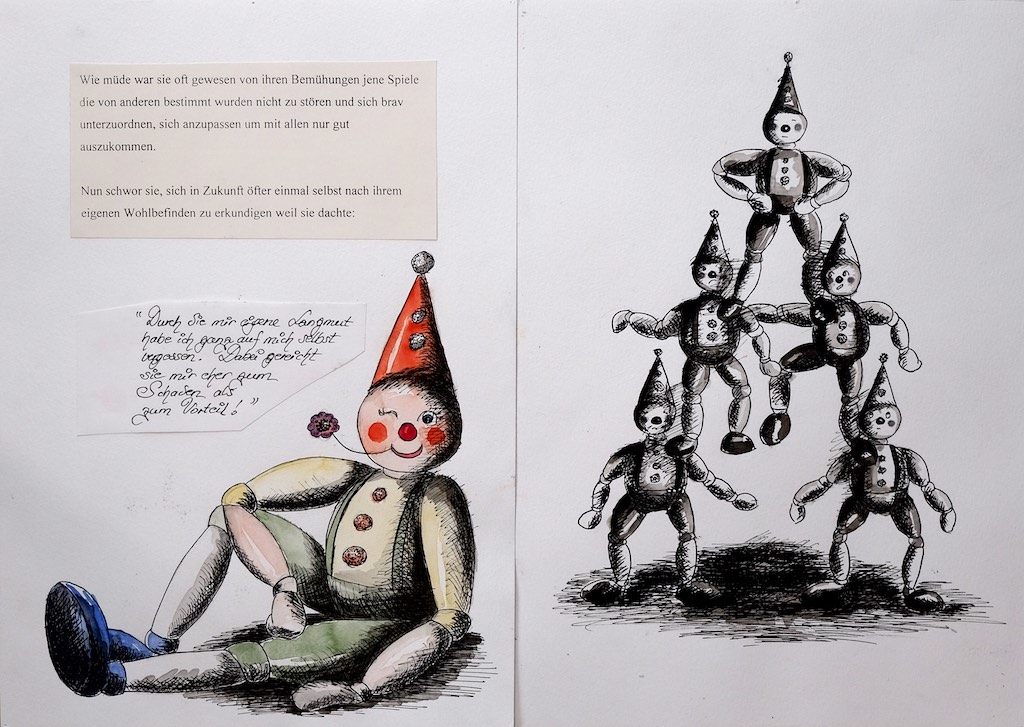 Wie müde war sie oft gewesen von ihren Bemühungen jene Spiele
die von anderen bestimmt wurden nicht zu stören und sich brav
unterzuordnen, sich anzupassen um mit allen nur gut
auszukommen.
Nun schwor sie, sich in Zukunft öfter einmal selbst nach ihrem
eigenen Wohlbefinden zu erkundigen weil sie dachte:
"Durch die mir eigene Langmut
habe ich ganz auf mich selbst
vergessen. Dabei gereicht
sie mir eher zum
Schaden als
zum Vorteil!"